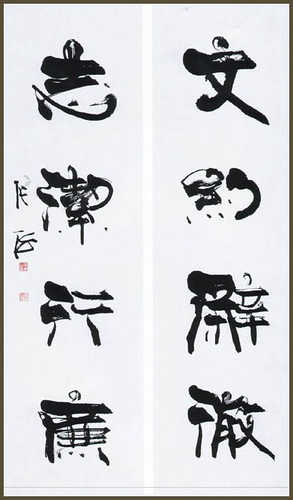 文約辭微
志潔行廉
张海